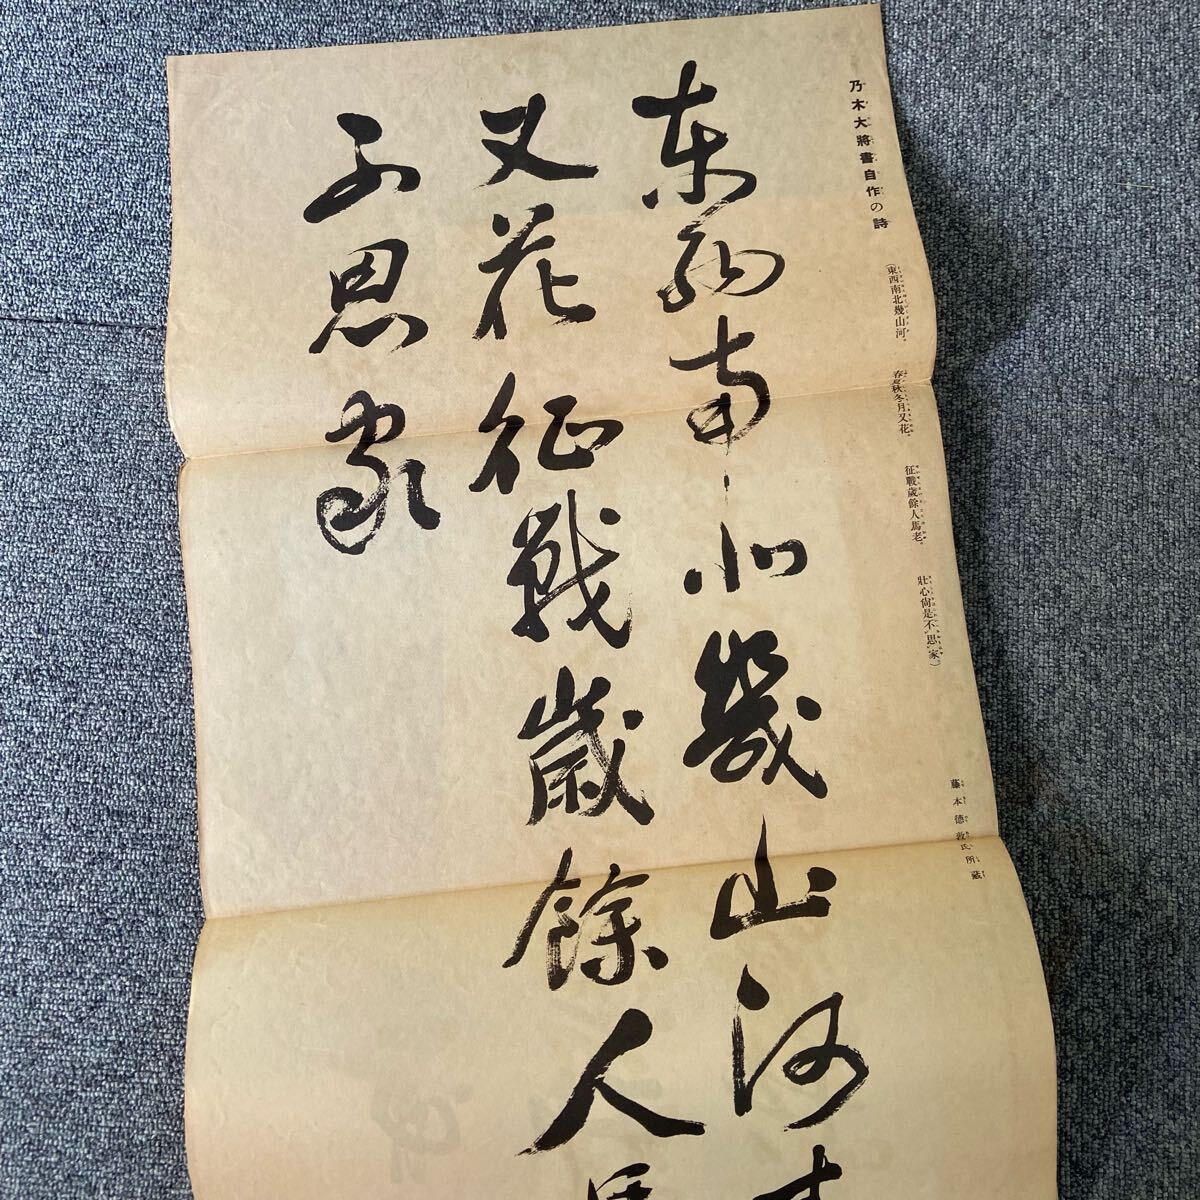 乃木大將書自作の詩
(東西南北幾山河。 春夏秋冬月又花。 征戰歲餘人馬老。 壯心尙是不思家。)
藤本德敦氏所藏
東西南北幾山河
又花征戰歲餘人
不思家